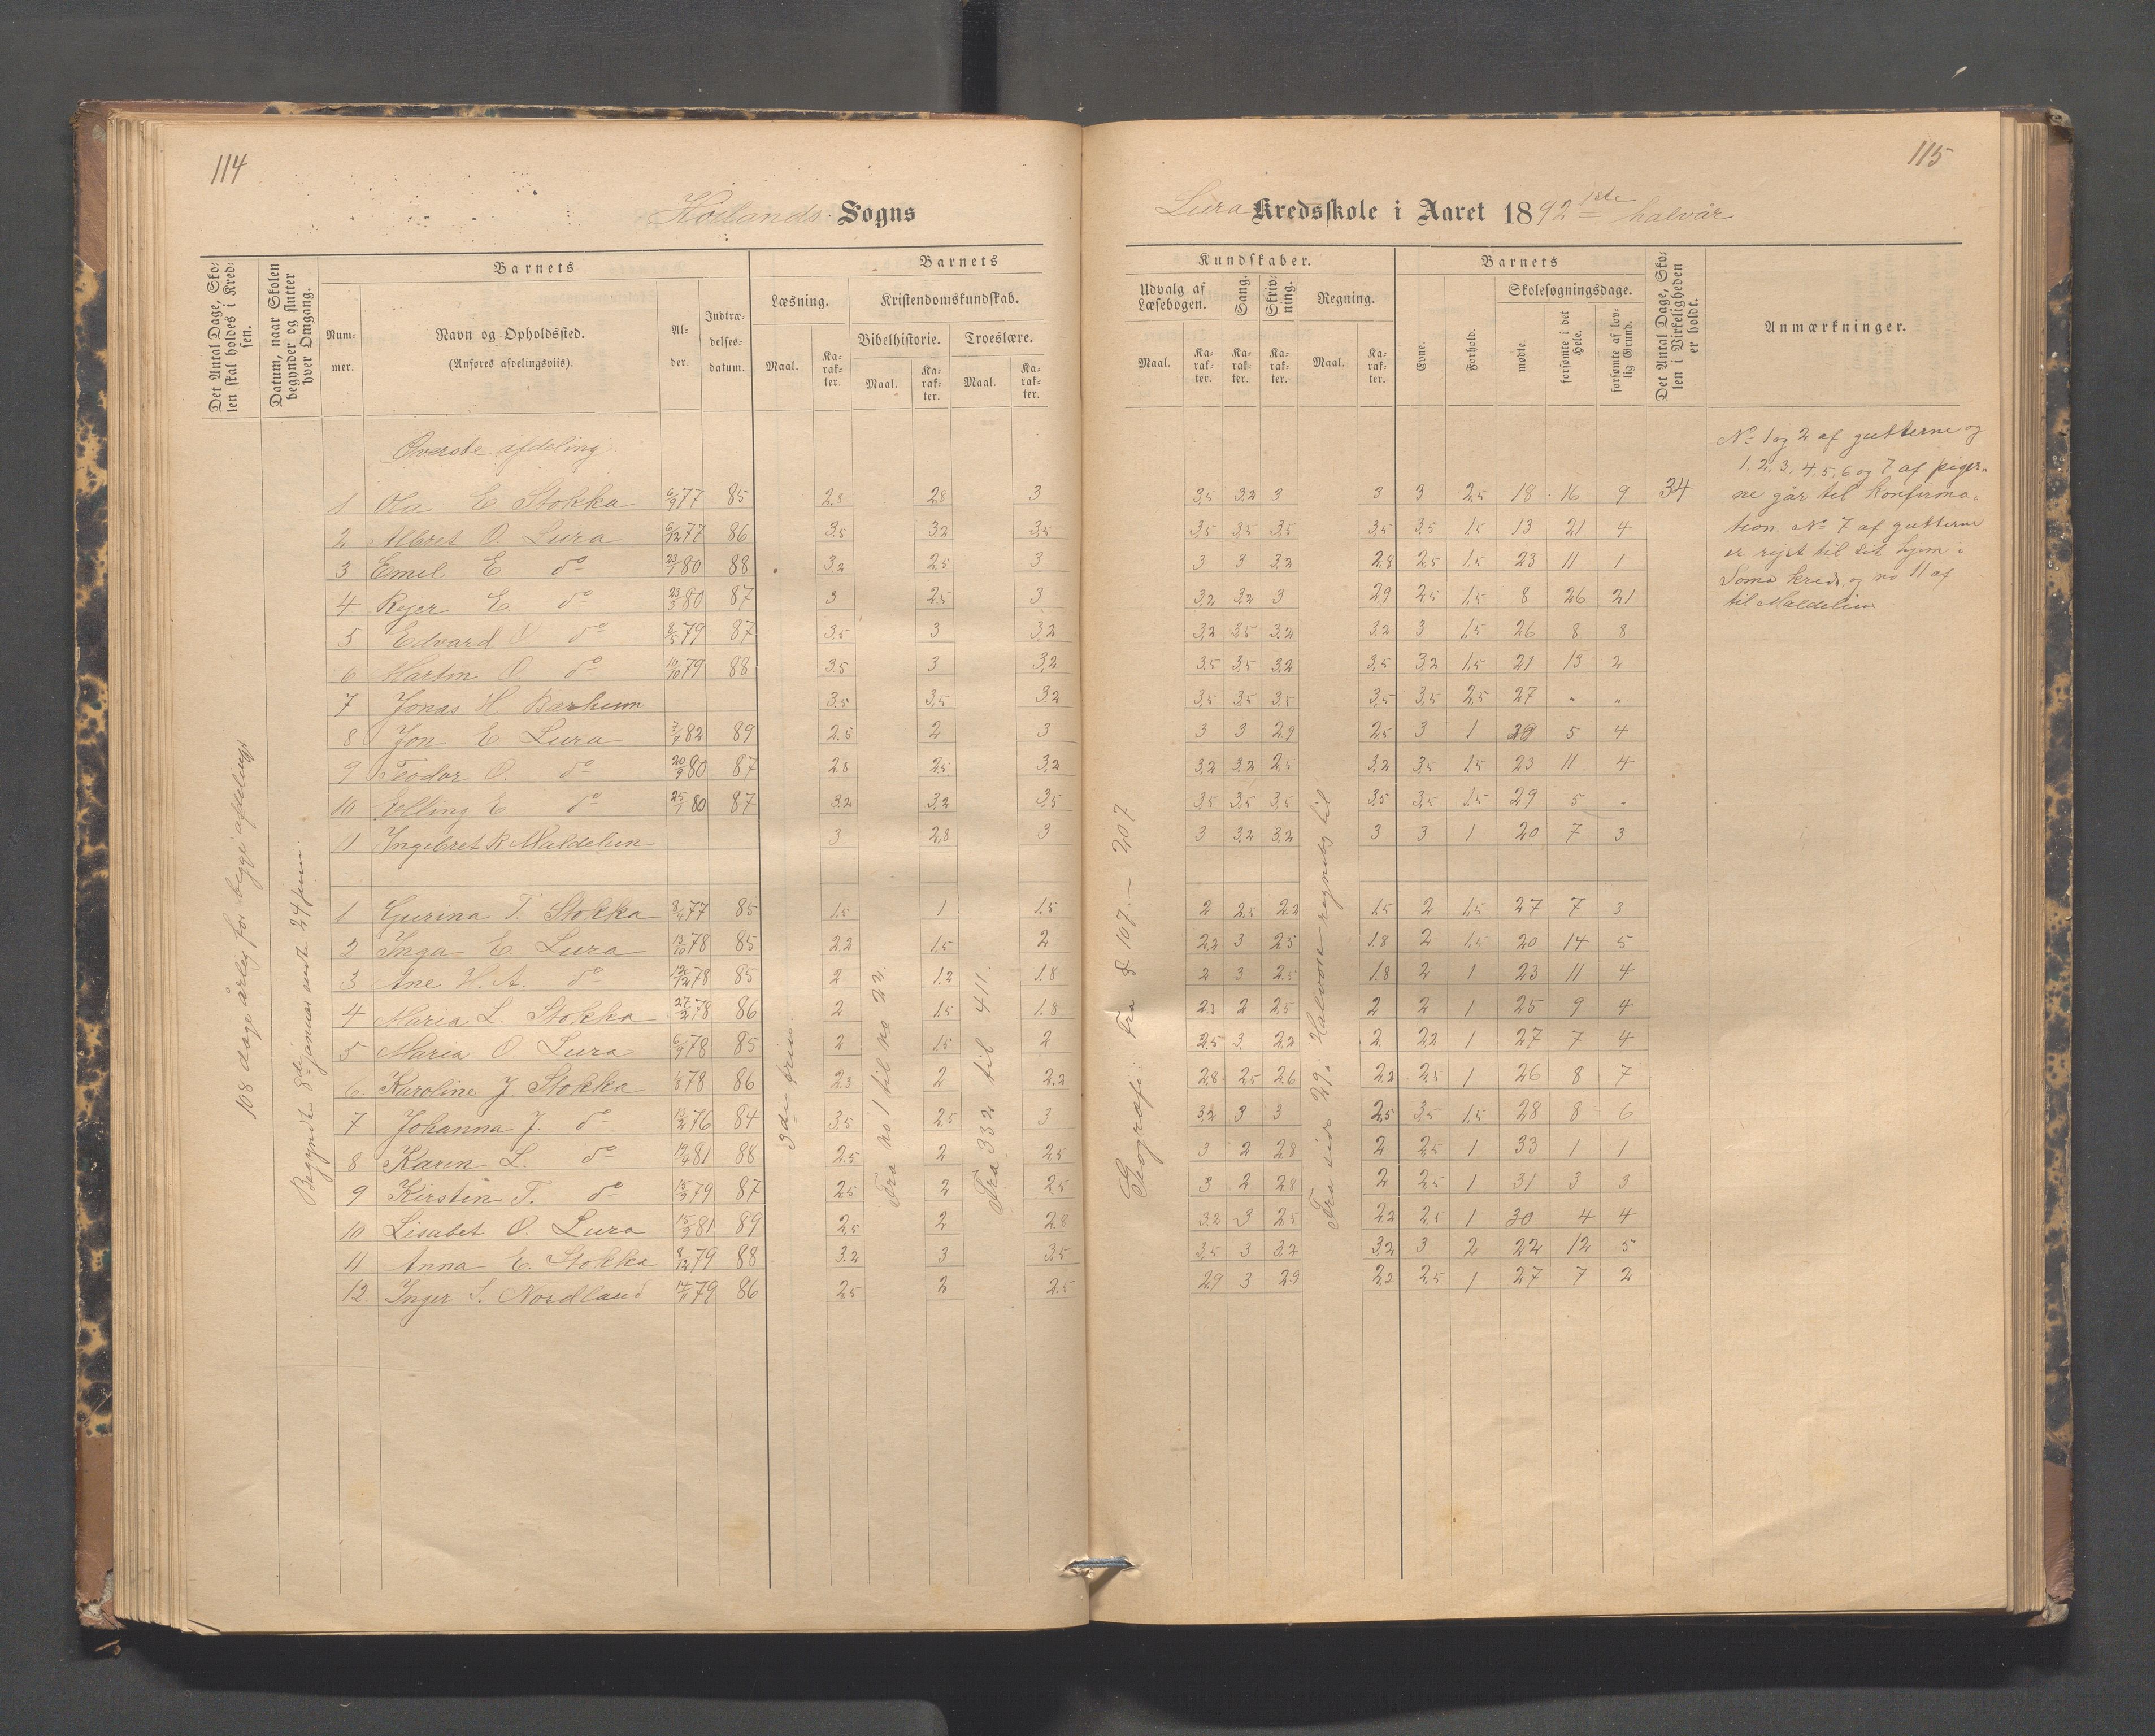 114
Høilands Sogns
Det Antal Dage, Sko-
len skal holdes i Kred-
sen.
Datum, naar Skolen
begynder og slutter
hver Omgang.
Barnets
Num-
mer.
Navn og Opholdssted.
(Anføres afdelingsviis).
Al-
der.
Indtræ-
delses-
datum.
Barnets
Læsning.
Maal.
Ka-
rak-
ter.
Kristendomskundskab.
Bibelhistorie.
Troeslære.
Maal.
Ka-
rak-
ter.
Maal.
Ka-
rak-
ter.
108 dage årleg for begge afdelinger
Begyndte 8de januar endte 24 juni.
3die trin.
Fra no 1 til no 22.
Fra 332 til 411.
Øverste afdeling
1 Ola E Stokka 6/9 77 85 2.8 2.8 3
2 Albret O. Lura 6/12 77 86 3.5 3.2 3.5
3 Emil E. do 23/7 80 88 3.2 2.5 3
4 Rejer E. do 23/3 80 87 3 2.5 3
5 Edvard do 8/5 79 87 3.5 3 3.2
6 Martin O. do 10/10 79 88 3.5 3 3.2
7 Jonas H Barheim 3.5 3.5 3.2
8 Jon E. Lura 7/7 82 89 2.5 2 3
9 Teodor O. do 20/9 80 87 2.8 2.5 3.2
10 Elling E do 25/1 80 87 3.2 3.2 3.5
11 Ingebret R Maldelien 3 2.8 3
1 Gurina T. Stokka 8/4 77 85 1.5 1 1.5
2 Inga E. Lura 13/10 78 85 2.2 1.5 2
3 Ane H. A. do 12/12 78 85 2 1.2 1.8
4 Maria L. Stokka 27/2 78 86 2 1.5 1.8
5 Maria O. Lura 6/9 78 85 2 1.5 2
6. Karoline J Stokka 1/8 78 86 2.3 2 2.2
7 Johanna J. do 13/2 76 84 3.5 2.5 3
8 Karen L. do 19/4 81 88 2.5 2 2.5
9 Kirstin T. do 15/2 79 87 2.5 2 2.5
10 Lisabet O. Lura 15/9 81 89 2.5 2 2.8
11 Anna E. Stokka 8/12 79 88 3.2 3 3.5
12. Inger S. Nordland 14/11 79 86 2.5 2 2.5
115
Lura Kredsskole i Aaret 1892 1ste halvår
Kundskaber.
Udvalg af
Læsebogen.
Maal.
Ka-
rak-
ter.
Sang.
Ka-
rak-
ter.
Skriv-
ning.
Ka-
rak-
ter.
Regning.
Maal.
Ka-
rak-
ter.
Barnets
Evne.
Forhold.
Skolesøgningsdage.
mødte.
forsømte i det
Hele.
forsømte af lov-
lig Grund.
Det Antal Dage, Sko-
len i Virkeligheden
er holdt.
Anmærkninger.
Geografi: Fra § 107 – 207
Fra side 29 i Halvorsens regnebog til
3.5 3.2 3 3 3 2.5 18 16 9 34
3.5 3.5 3.5 3.5 3.5 1.5 13 21 4
3 3 3.2 2.8 2.5 1.5 23 11 1
3.2 3.2 3 2.9 2.5 1.5 8 26 21
3.2 3.5 3.2 3.2 3 1.5 26 8 8
3.5 3.5 3.2 3.5 3.2 1.5 21 13 2
3.5 3.5 3.5 3.5 3.5 2.5 27 " "
3 3 2.9 2.5 3 1 29 5 4
3.2 3.2 2.5 3.2 3.5 1.5 23 11 4
3.5 3.5 3.5 3.5 3.5 1.5 29 5 -
3 3.2 3.2 3 3 1 20 7 3
2 2.5 2.2 1.5 2 1.5 27 7 3
2.2 3 2.5 1.8 2 1.5 20 14 5
2 3 2.5 1.8 2 1 23 11 4
2.2 2 2.5 2 2 1 25 9 4
2.5 3 2.2 2 2.2 1 27 7 4
2.8 2.5 2.6 2.2 2.5 1 26 8 7
3.2 3 3 2.5 3.5 1.5 28 8 6
3 2 2.8 2 2.5 1 33 1 1
3 2 2.8 2 2.5 1 31 3 3
3.2 3 2.5 2.2 2.5 1 30 4 4
3.5 3 3.2 3.2 3 2 22 12 5
2.9 3 2.9 2.2 2.5 1 27 7 2
No 1 og 2 af gutterne og
1, 2, 3, 4, 5, 6 og 7 af piger-
ne går til konfirma-
tion. No 7 af gutterne
er rejst til sit hjem i
Soma kreds, og no 11 af
til Maldelien